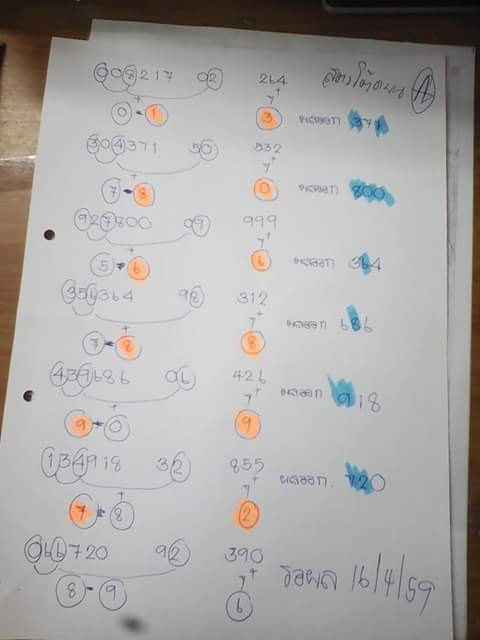 008217 02 264 สูตรโต๊ดบน A
+ y+
0 - 1 3 ผลออก 371
304371 50 532
+ y+
7 - 8 0 ผลออก 800
927800 09 999
+ y+
5 = 6 6 ผลออก 364
356364 98 312
+ y+
7 = 8 8 ผลออก 686
439686 06 426
+ y+
9 = 0 9 ผลออก 918
134918 32 855
+ y+
7 = 8 2 ผลออก. 720
066720 92 390
y+
8 - 9 6 รอผล 16/4/59